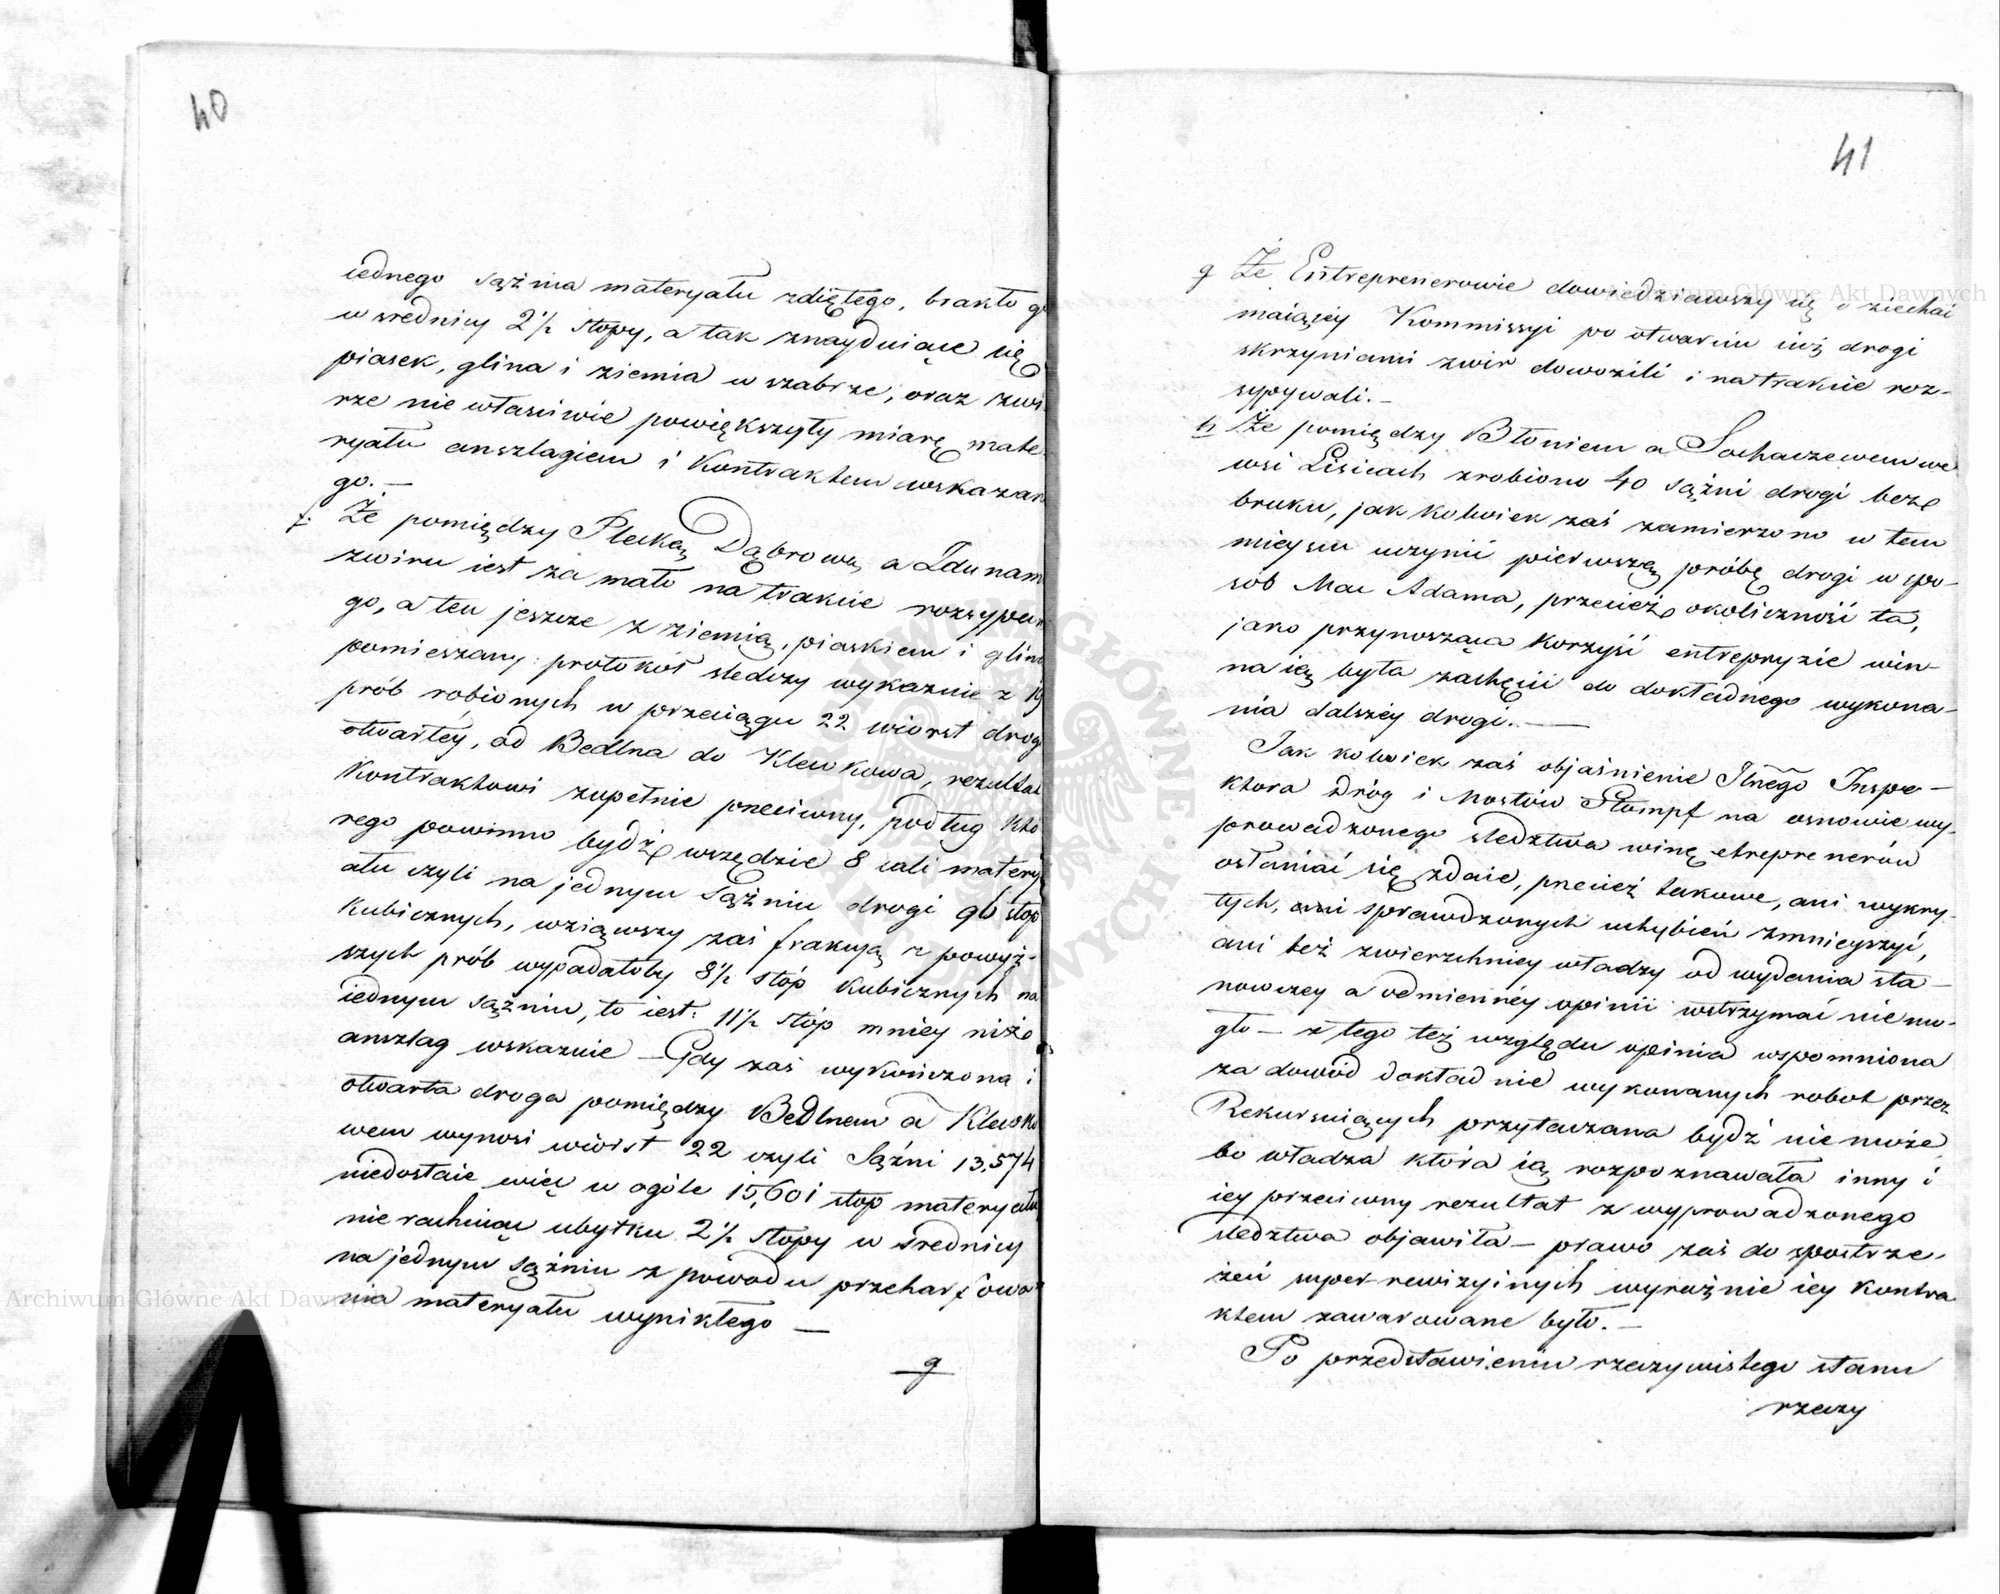 40
iednego sążnia materyału zdiętego, brakło go
w średnicy 2½ stopy, a tak znayduiące się
piasek, glina i ziemia w szabrze, oraz żwi
rze nie właściwie powiększyły miarę mate
ryału anszlagiem i Kontraktem wskazan
go. —
f. Że pomiędzy Plecką Dąbrową a Zdunam
żwiru iest za mało na trakcie rozsypan
go, a ten jeszcze z ziemią, piaskiem i glin
pomieszany: protokół śledczy wykazuie z 19
prób robionych w przeciągu 22 wiorst drogi
otwartéy, od Bedlna do Klewkowa, rezultat
Kontraktowi zupełnie przeciwny, podług któ
rego powinno bydź wszędzie 8 cali matery
ału czyli na jednym Sążniu drogi 96 stóp
Kubicznych, wziąwszy zaś frakcyą z powyż-
szych prób wypadałoby 8½ stóp Kubicznych na
iednym sążniu, to iest: 11½ stóp mniéy niż
anszlag wskazuie — Gdy zaś wykończona i
otwarta droga pomiędzy Bedlnem a Klewko
wem wynosi wiorst 22 czyli Sążni 13,574
niedostaie więc w ogóle 15,601 stóp materyału
nie rachuiąc ubytku 2½ stopy w średnicy
na jednym sążniu z powodu przeharfowa-
nia materyału wynikłego —
g
41
g Że Entreprenerowie dowiedziawszy się o ziechać
maiącéy Kommissyi po otwarciu iuż drogi
skrzyniami żwir dowozili i na trakcie roz-
sypywali. —
h Że pomiędzy Błoniem a Sochaczewem we
wsi Lisicach zrobiono 40 sążni drogi bez
bruku, jakkolwiek zaś zamierzono w tem
mieyscu uczynić pierwszą próbę drogi w spo-
sób Mac Adama, przecież okoliczność ta,
jako przynosząca Korzyść entrepryzie win-
na ią była zachęcić do dokładnego wykona-
nia dalszéy drogi. —
Jak kolwiek zaś objaśnienie JPnego Inspe-
ktora Dróg i Mostów Stompf na osnowie wy-
prowadzonego śledztwa winę etreprenerów
osłaniać się zdaie, przecież takowe, ani wykry-
tych, ani sprawdzonych uchybień zmnieyszyć,
ani też zwierzchniéy władzy od wydania sta-
nowczéy a odmiennéy opinii wstrzymać nie mo-
gło — z tego też względu opinia wspomniona
za dowód dokładnie wykonanych robot przez
Rekursuiących przytaczana bydź nie może,
bo władza która ią rozpoznawała inny i
iéy przeciwny rezultat z wyprowadzonego
śledztwa objawiła — prawo zaś do spostrze-
żeń super-rewizyinych wyraźnie iéy Kontra
ktem zawarowane było. —
Po przedstawieniu rzeczywistego stanu
rzeczy
Archiwum Główne Akt Dawnych
Archiwum Główne Akt Dawnych